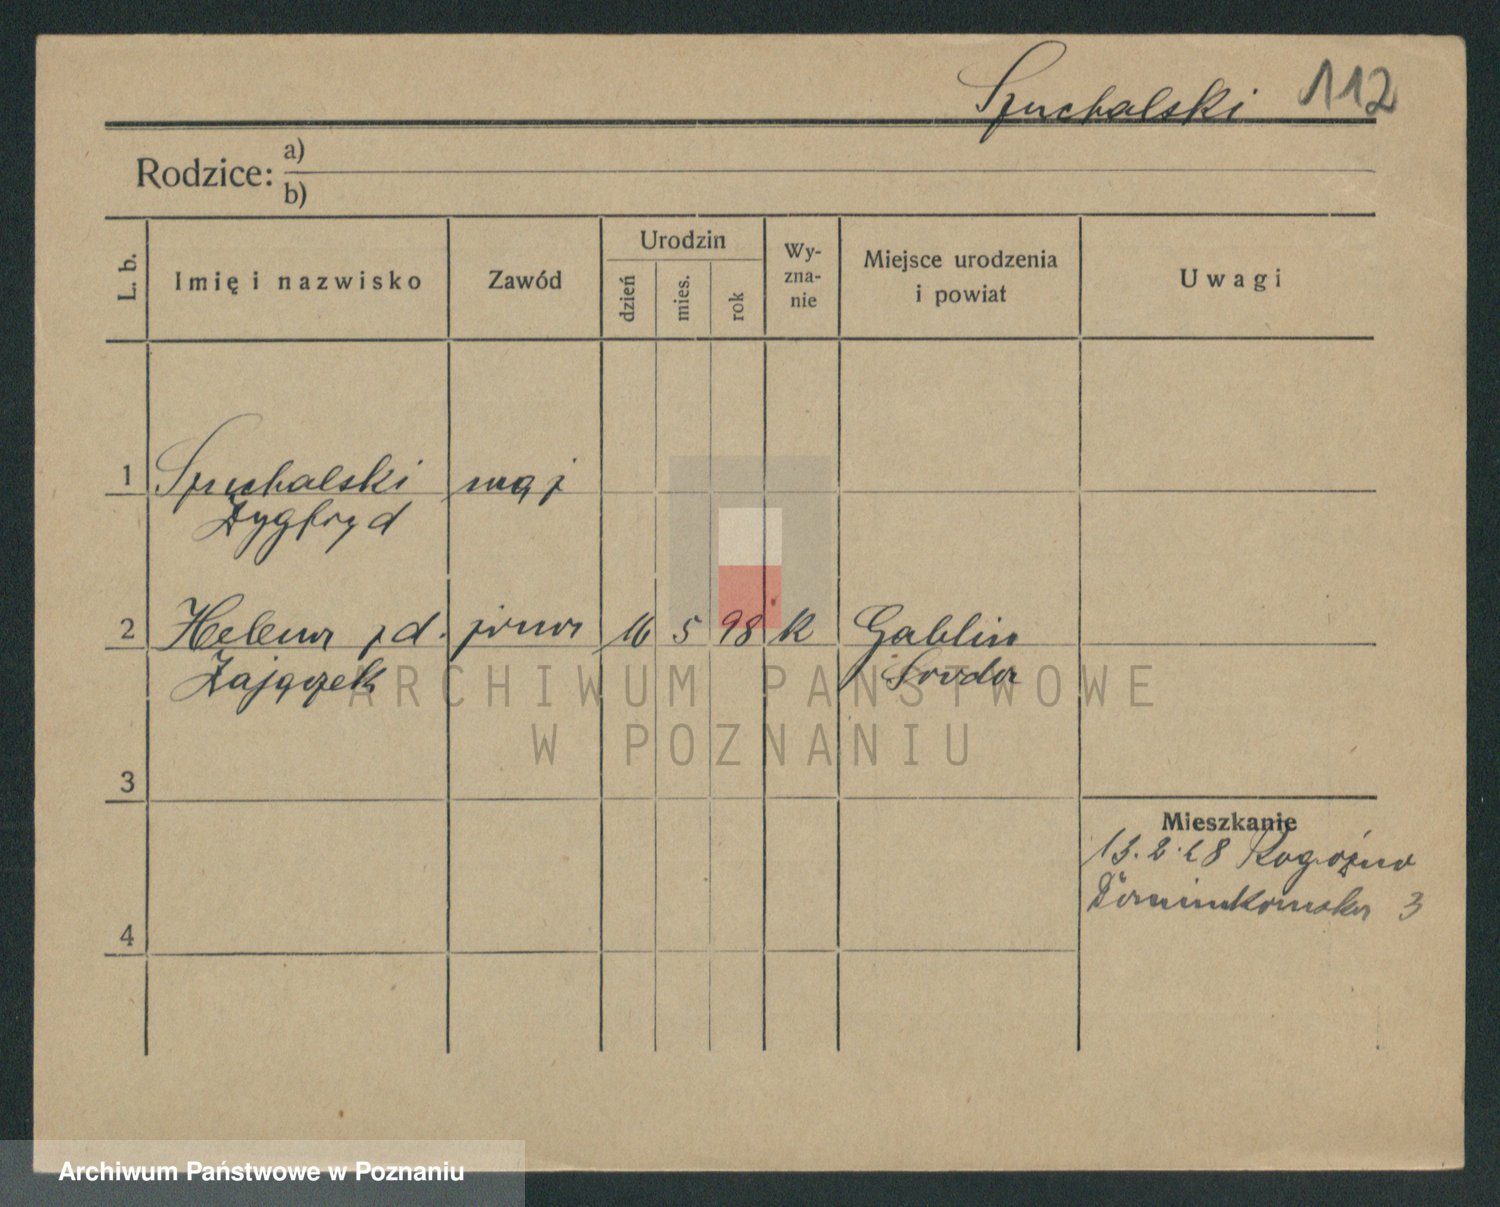 Szuchalski 112
Rodzice: a)
b)
L. b. Imię i nazwisko Zawód Urodzin dzień mies. rok Wy-zna-nie Miejsce urodzenia i powiat Uwagi
1 Szuchalski mąż
Zygfryd
2 Helena zd. żona 16 5 98 k Gablin
Zajączek Środa
3
Mieszkanie
Rogoźno
4 3
ARCHIWUM PAŃSTWOWE
W POZNANIU
Archiwum Państwowe w Poznaniu